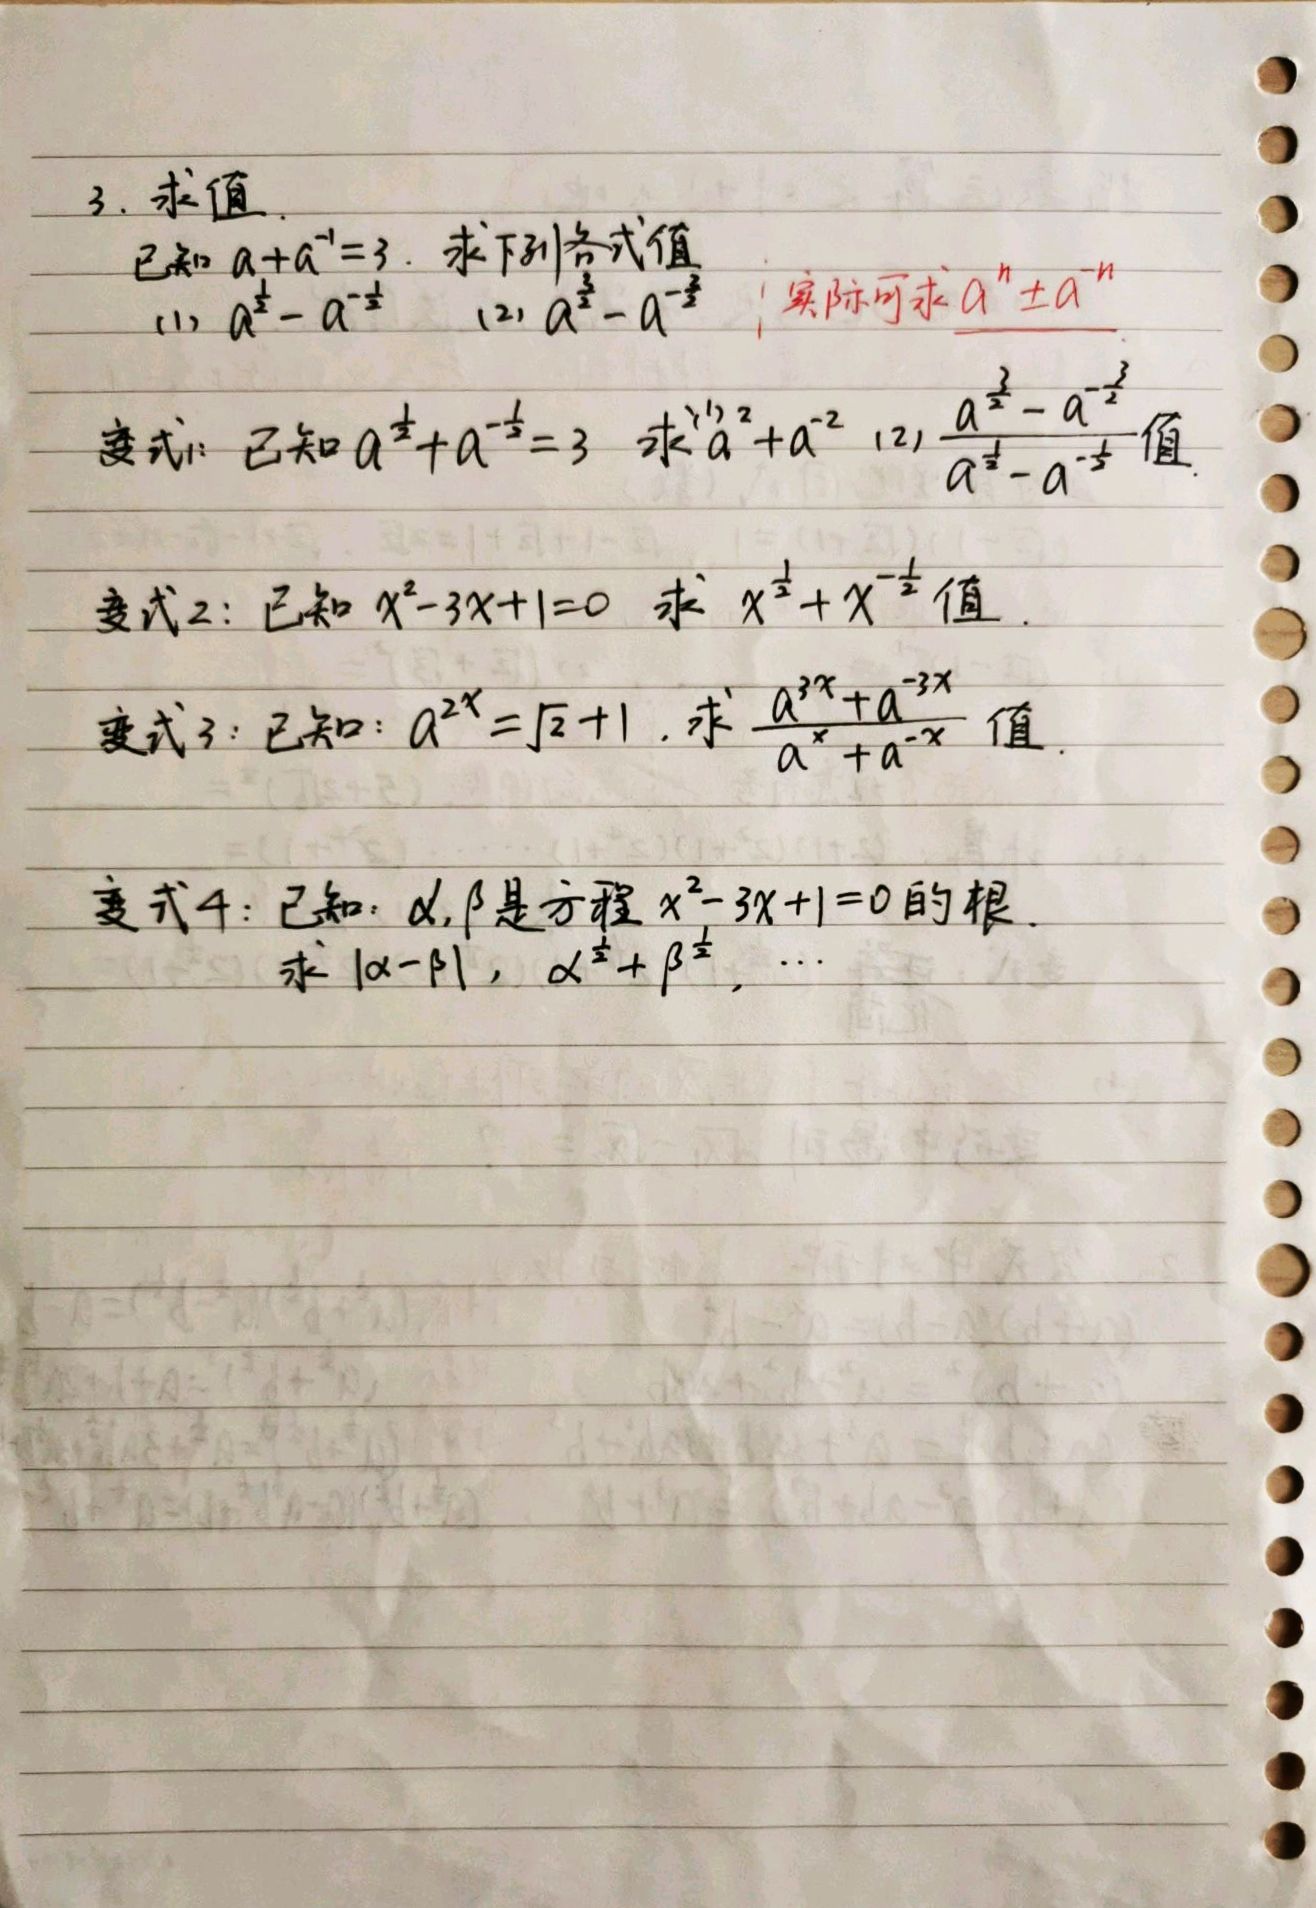 3. 求值.
已知 a+a⁻¹=3. 求下列各式值
(1) a^{1/2} - a^{-1/2} (2) a^{3/2} - a^{-3/2} 实际可求 aⁿ ± a⁻ⁿ
变式1: 已知 a^{1/2} + a^{-1/2} = 3 求(1) a² + a⁻² (2) (a^{3/2} - a^{-3/2})/(a^{1/2} - a^{-1/2}) 值.
变式2: 已知 x²-3x+1=0 求 x^{1/2} + x^{-1/2} 值.
变式3: 已知: a^{2x} = √2+1. 求 (a^{3x} + a^{-3x})/(a^x + a^{-x}) 值.
变式4: 已知: α,β是方程 x²-3x+1=0 的根.
求 |α-β|, α^{1/2} + β^{1/2}, …